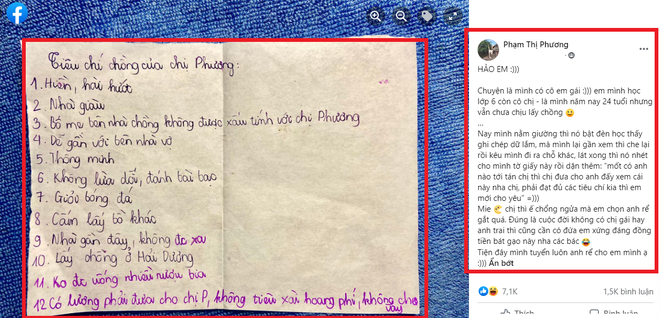 Tiêu chí chồng của chị Phương:
1. Hiền, hài hước
2. Nhà giàu
3. Bố mẹ bên nhà chồng không được xấu tính với chị Phương
4. Dễ gần với bên nhà vợ
5. Thông minh
6. Không lừa dối, đánh bài bạc
7. Guốc bóng đá
8. Cấm lấy bồ khác
9. Nhà gần đây, không đc xa
10. Lấy chồng ở Hải Dương
11. Ko đc uống nhiều rượu bia
12 Có lương phải đưa cho chị P, không tiêu xài hoang phí, không cho
vay
Phạm Thị Phương
HẢO EM :)))
Chuyện là mình có cô em gái :))) em mình học
lớp 6 còn cô chị - là mình năm nay 24 tuổi nhưng
vẫn chưa chịu lấy chồng
...
Nay mình nằm giường thì nó bật đèn học thấy
ghi chép dữ lắm, mà mình lại gần xem thì che lại
rồi kêu mình đi ra chỗ khác, lát xong thì nó nhét
cho mình tờ giấy này rồi dặn thêm: "mốt có anh
nào tới tán chị thì chị đưa cho anh đấy xem cái
này nha chị, phải đạt đủ các tiêu chí kia thì em
mới cho yêu" =)))
Mie chị thì ế chổng ngửa mà em chọn anh rể
gắt quá. Đúng là cuộc đời không có chị gái hay
anh trai thì cũng cần có đứa em xứng đáng đồng
tiền bát gạo này nha các bác
Tiện đây mình tuyển luôn anh rể cho em mình ạ
:))) Ẩn bớt
7,1K
1,5K bình luận
Thích
Bình luận